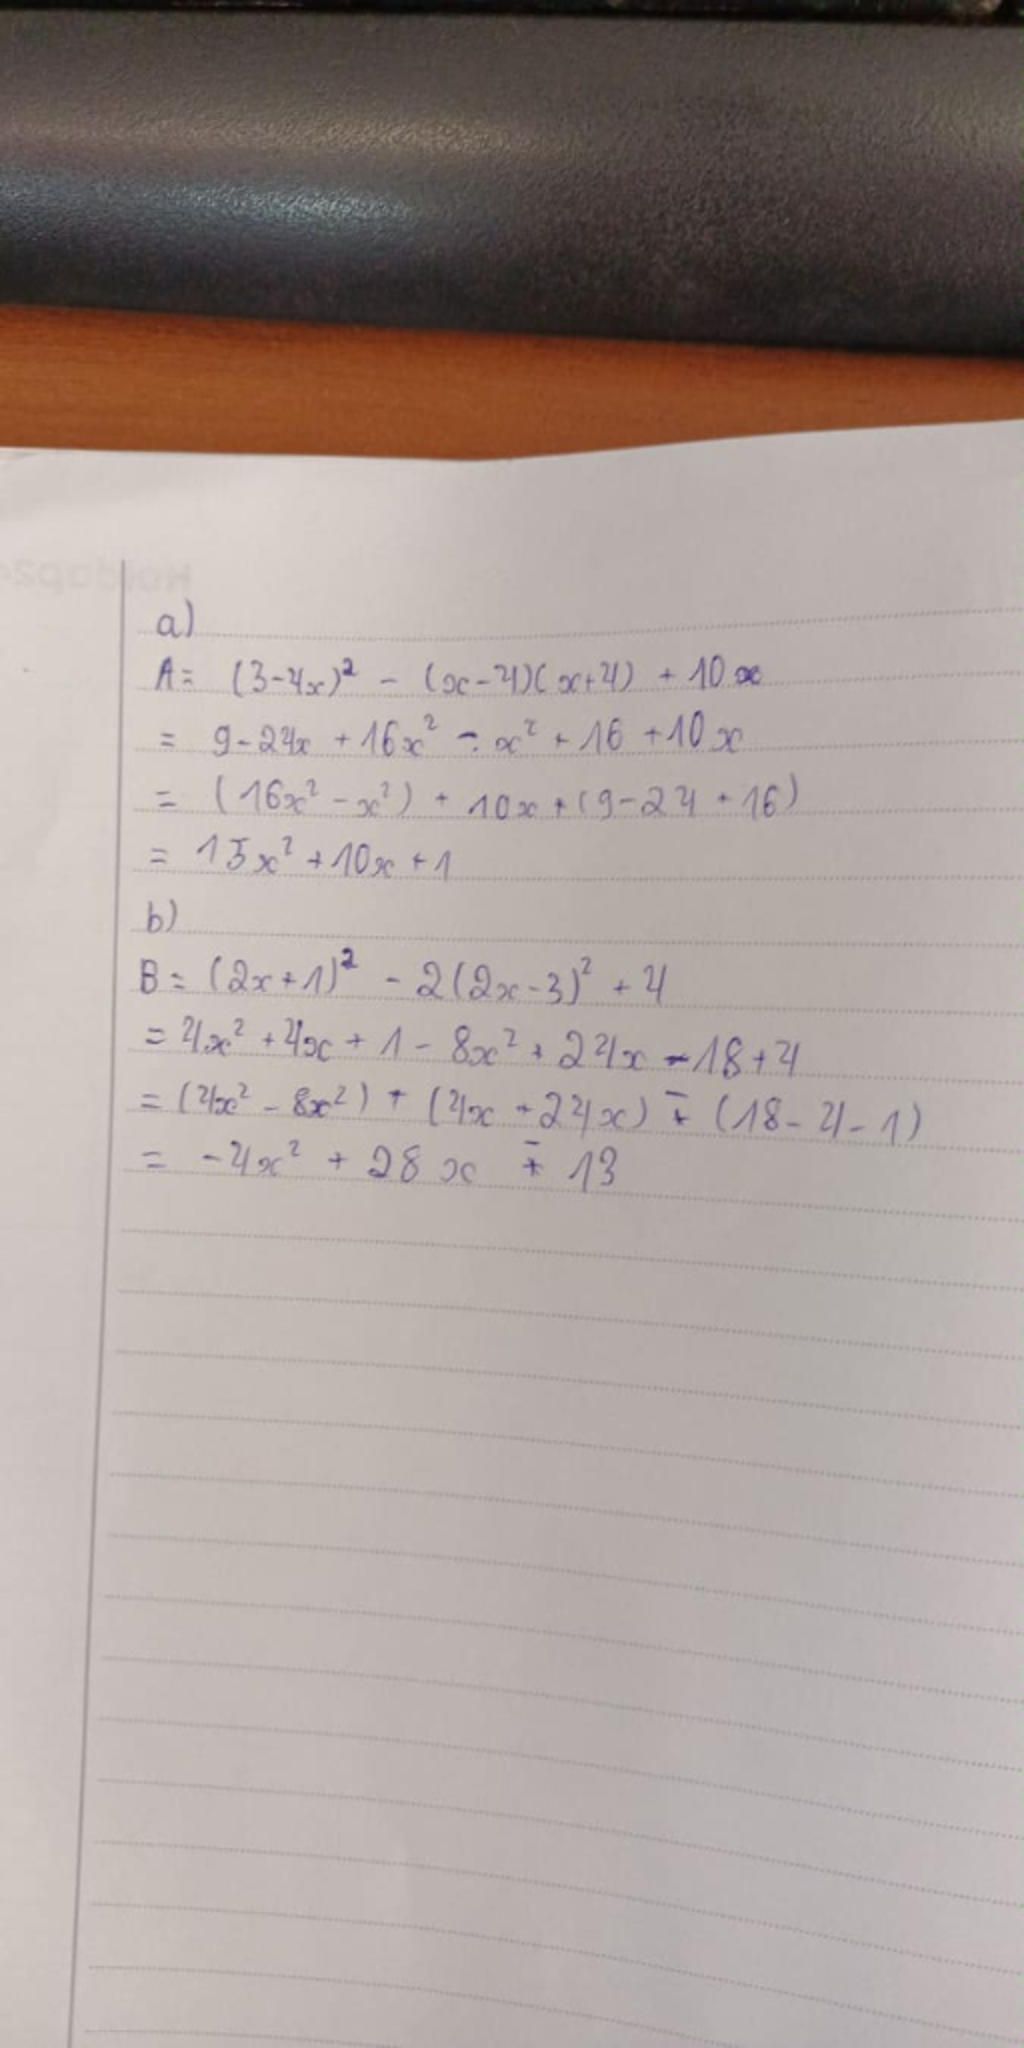 a)
A= (3-4x)² - (x-4)(x+4) + 10x
= 9-24x + 16x² - x² + 16 + 10x
= (16x² - x²) + 10x + (9-24 + 16)
= 15x² + 10x + 1
b)
B = (2x+1)² - 2(2x-3)² + 4
= 4x² + 4x + 1 - 8x² + 24x - 18 + 4
= (4x² - 8x²) + (4x + 24x) - (18 - 4 - 1)
= -4x² + 28x - 13